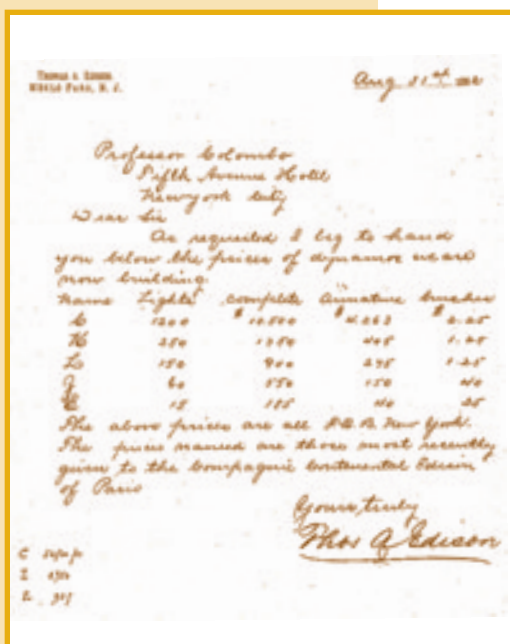 THOMAS A. EDISON
MENLO PARK, N. J.
Aug 31st
Professor Colombo
Fifth Avenue Hotel
Newyork City
Dear Sir
As requested I beg to hand
you below the prices of dynamos we are
now building.
Name Lights Complete Armature brushes
C 1200 $ $
K 250
L 150
60 150 40
E 15 40 25
The above prices are all F.O.B. New York.
The prices named are those most recently
given to the Compagnie Continental Edison
of Paris
Yours truly
Thos A Edison